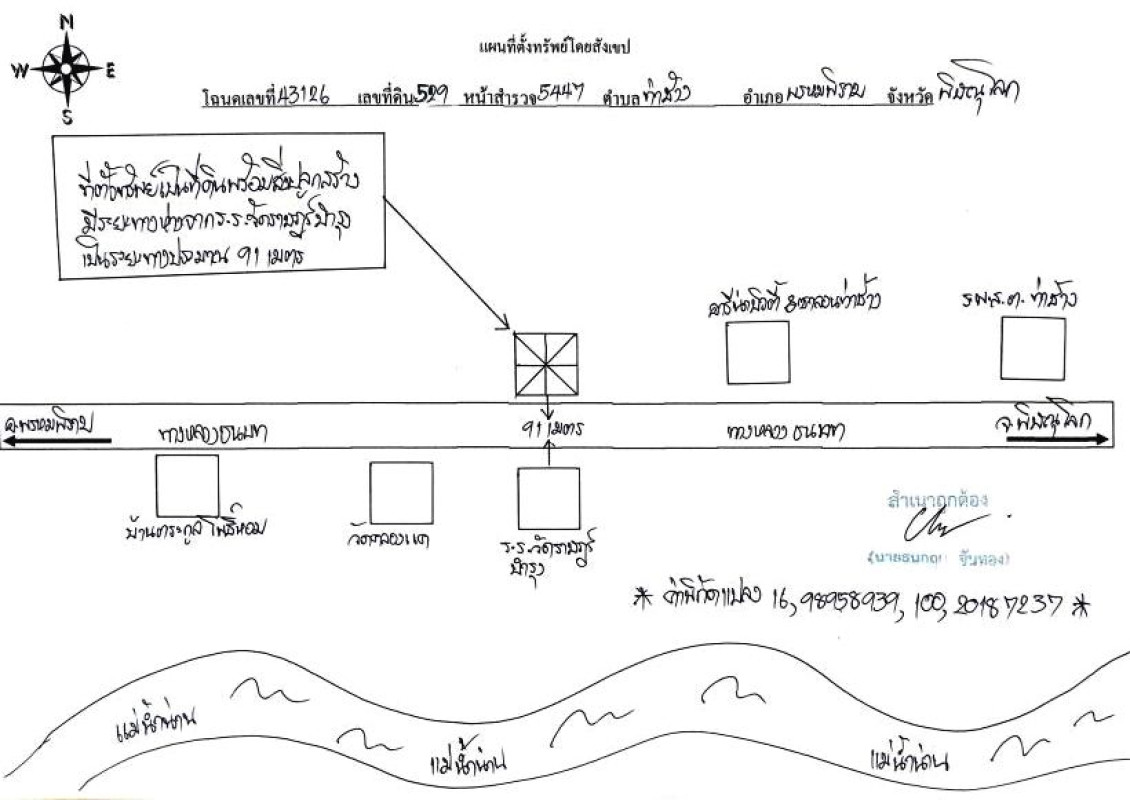 N
W E
S
แผนที่ตั้งทรัพย์โดยสังเขป
โฉนดเลขที่ 43126 เลขที่ดิน 529 หน้าสำรวจ 5447 ตำบล ท่าช้าง อำเภอ พรหมพิราม จังหวัด พิษณุโลก
ที่ตั้งทรัพย์เป็นที่ดินพร้อมสิ่งปลูกสร้าง
มีระยะทางห่างจาก ร.ร.วัดราษฎร์บำรุง
เป็นระยะทางประมาณ 91 เมตร
บิวตี้ & ซาลอนท่าช้าง
รพ.ส.ต. ท่าช้าง
อ.พรหมพิราม
ทางหลวงชนบท
91 เมตร
ทางหลวงชนบท
จ.พิษณุโลก
บ้านตระกูลโพธิ์หอม
วัดคลองแค
ร.ร.วัดราษฎร์
บำรุง
สำเนาถูกต้อง
จันทอง)
* ค่าพิกัดแปลง 16,98958939, 100,20187237 *
แม่น้ำน่าน
แม่น้ำน่าน
แม่น้ำน่าน